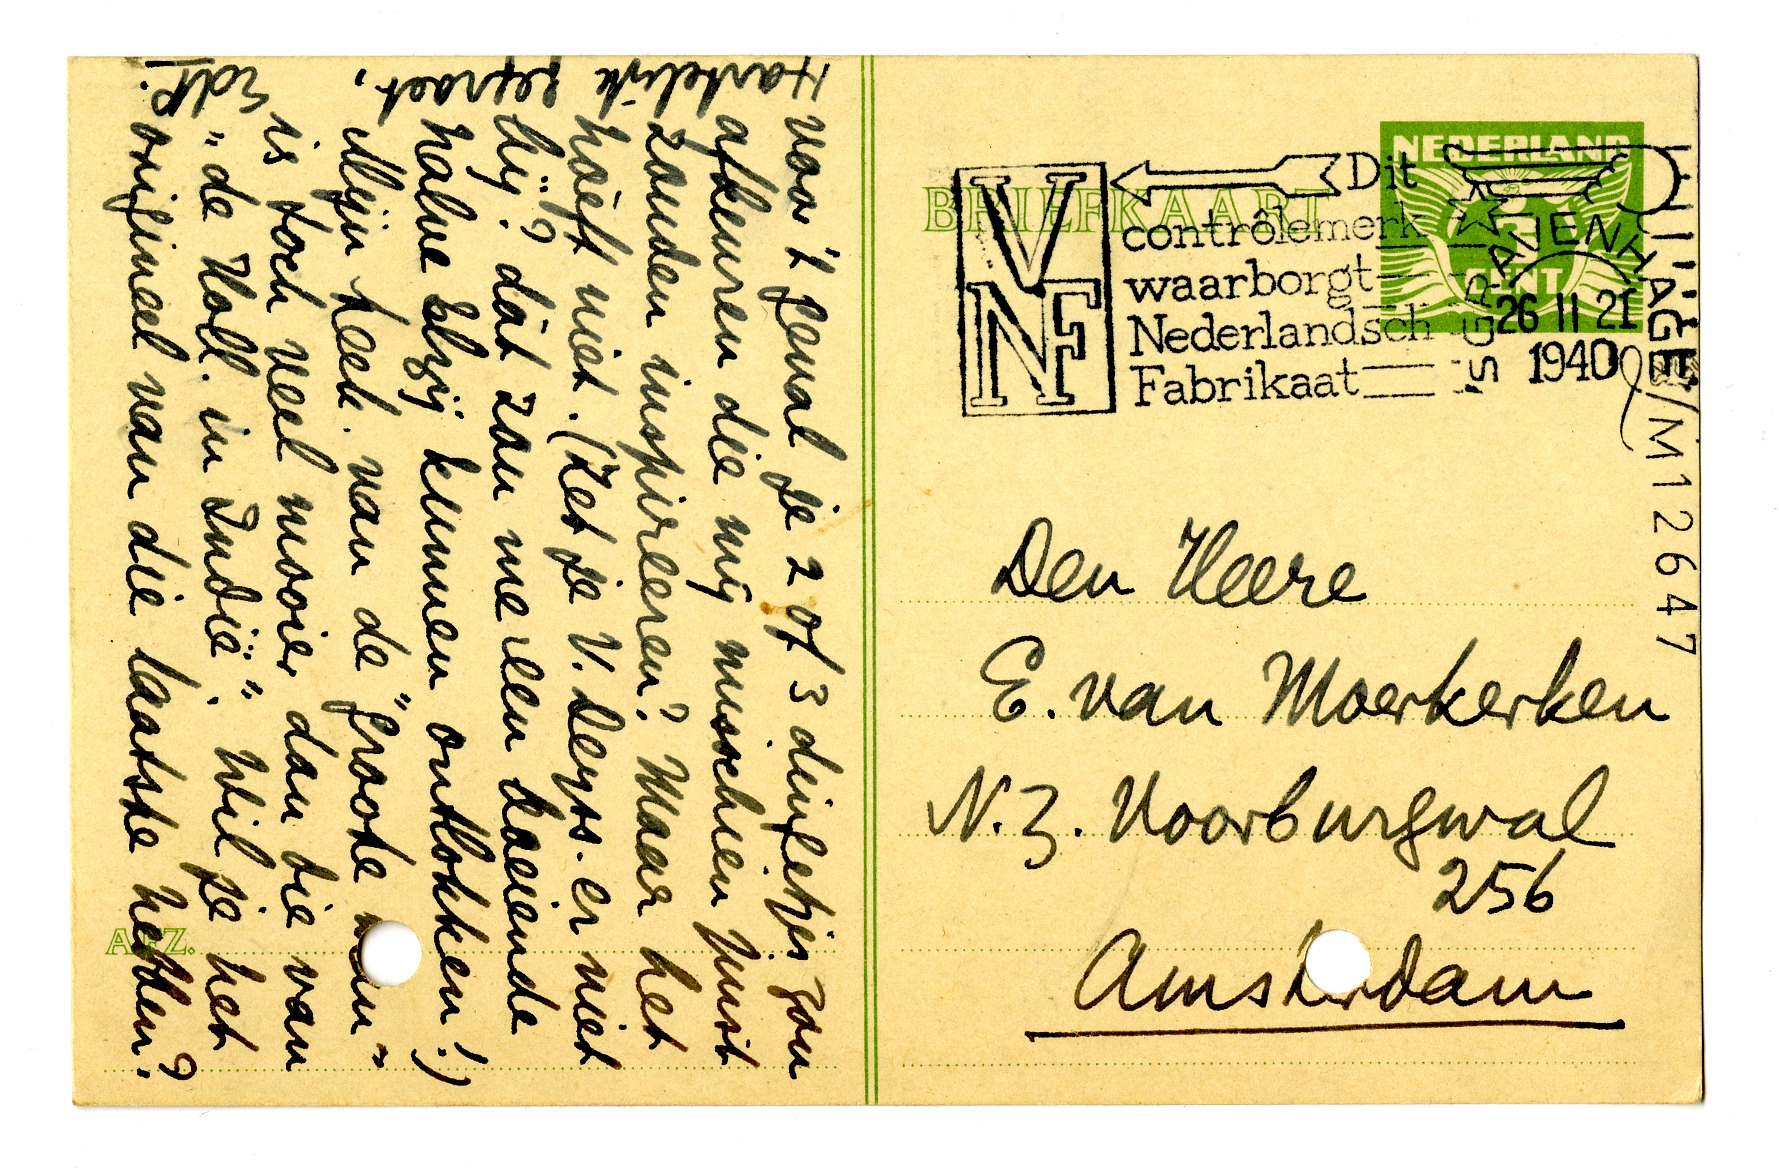 voor 't geval je 2 of 3 dingetjes zou
afkeuren die mij misschien juist
zouden inspireeren? Maar het
hoeft niet. (Zet je V. Leyss. er niet
bij? dàt zou me een laaiende
halve elzij kunnen ontlokken!)
Mijn teek. van de "groote man"
is toch veel mooier dan die van
"de Holl. in Indië". Wil je het
origineel van die laatste hebben?
Hartelijk gegroet,
EdP.
BRIEFKAART
AFZ.
NEDERLAND
CENT
VNF
Dit
contrôlemerk
waarborgt
Nederlandsch
Fabrikaat
'S GRAVENHAGE
26 II 21
1940
/M12647
Den Heere
E. van Moerkerken
N. Z. Voorburgwal
256
Amsterdam